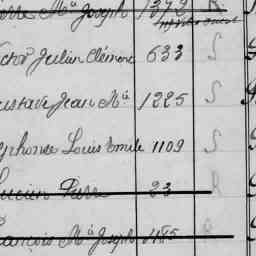 Mie Joseph 1372 R
Victor Julien Clémence 633 S
Gustave Jean Mie 1225 S
Alphonse Louis Emile 1109 S
Lucien 23 R
François Mie Joseph 1185 R